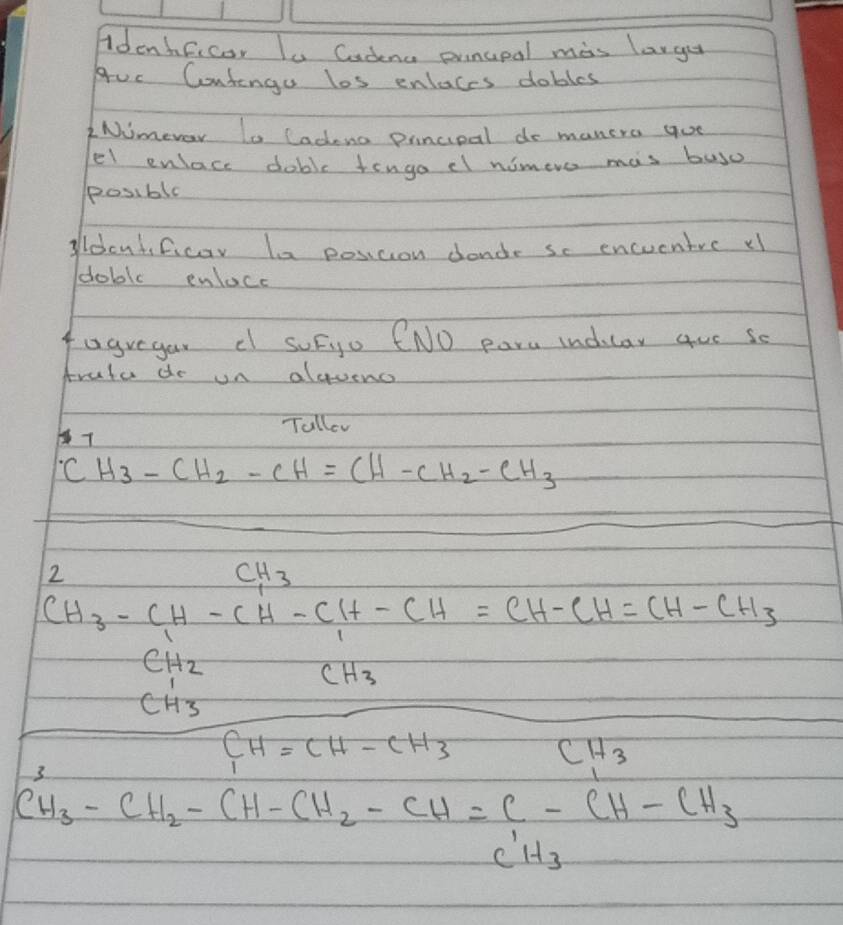 1Identificar la Cadena principal más larga
que Contenga los enlaces dobles
2 Númerar la Cadena Principal de manera que
el enlace doble tenga el número más bajo
posible
3 Identificar la posicion donde se encuentre el
doble enlace
4 agregar el sufijo ENO para indicar que se
trata de un alqueno
Taller
1
CH3 - CH2 - CH = CH - CH2 - CH3
2
CH3
CH3 - CH - CH - CH - CH = CH - CH = CH - CH3
CH2 CH3
CH3
CH = CH - CH3 CH3
3
CH3 - CH2 - CH - CH2 - CH = C - CH - CH3
CH3